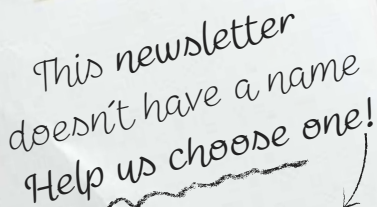 This newsletter
doesn't have a name
Help us choose one!